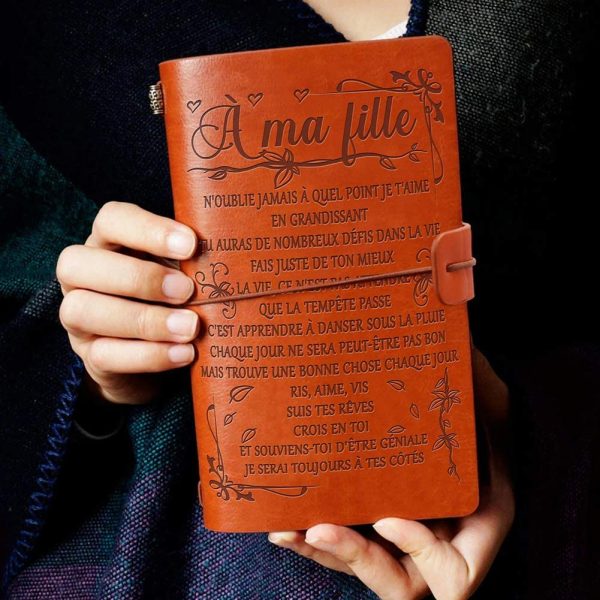 À ma fille
N'OUBLIE JAMAIS À QUEL POINT JE T'AIME
EN GRANDISSANT
TU AURAS DE NOMBREUX DÉFIS DANS LA VIE
FAIS JUSTE DE TON MIEUX
LA VIE, CE N'EST PAS ATTENDRE
QUE LA TEMPÊTE PASSE
C'EST APPRENDRE À DANSER SOUS LA PLUIE
CHAQUE JOUR NE SERA PEUT-ÊTRE PAS BON
MAIS TROUVE UNE BONNE CHOSE CHAQUE JOUR
RIS, AIME, VIS
SUIS TES RÊVES
CROIS EN TOI
ET SOUVIENS-TOI D'ÊTRE GÉNIALE
JE SERAI TOUJOURS À TES CÔTÉS